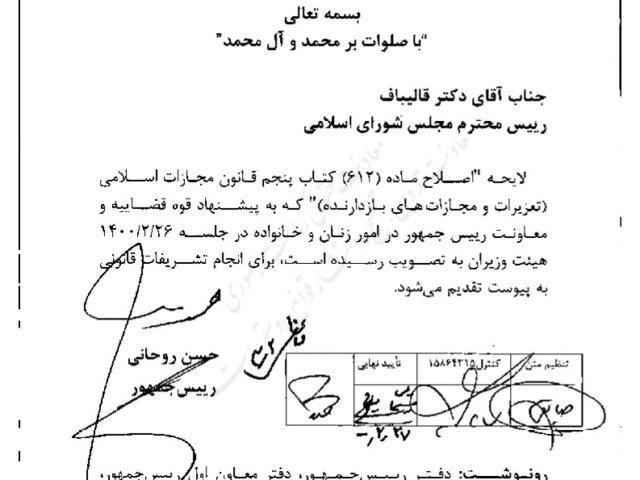 بسمه تعالی
"با صلوات بر محمد و آل محمد"
جناب آقای دکتر قالیباف
رییس محترم مجلس شورای اسلامی
لایحه "اصلاح ماده (۶۱۲) کتاب پنجم قانون مجازات اسلامی
(تعزیرات و مجازات‌های بازدارنده)" که به پیشنهاد قوه قضاییه و
معاونت رییس جمهور در امور زنان و خانواده در جلسه ۱۴۰۰/۲/۲۶
هیئت وزیران به تصویب رسیده است، برای انجام تشریفات قانونی
به پیوست تقدیم می‌شود.
حسن روحانی
رییس‌جمهور
تنظیم متن کنترل ۱۵۸۶۴۲۱۵ تأیید نهایی
رونوشت: دفتر رییس‌جمهور، دفتر معاون اول رییس‌جمهور،